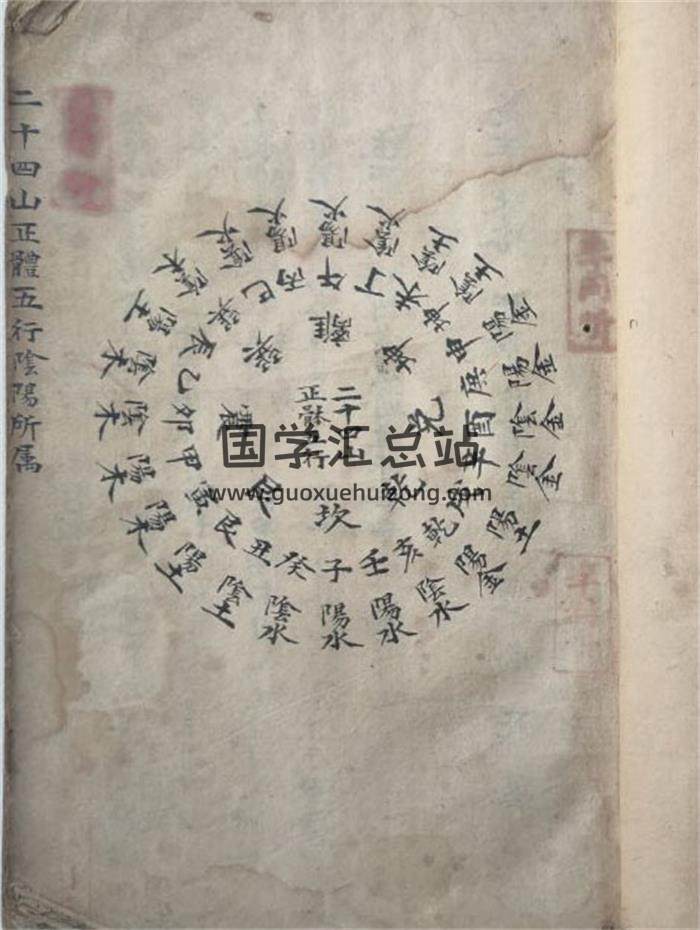 二十四山正體五行陰陽所属
二十四山
正躰五行
離
坤
兑
乾
坎
艮
震
巽
午
丁
未
坤
申
庚
酉
辛
戌
乾
亥
壬
子
癸
丑
艮
寅
甲
卯
乙
辰
巽
巳
丙
陽火
陰火
陰土
陰土
陽金
陽金
陰金
陰金
陽土
陽金
陰水
陽水
陽水
陰水
陰土
陽土
陽木
陽木
陰木
陰木
陽土
陰木
陰火
陽火
国学汇总站
www.guoxuehuizong.com